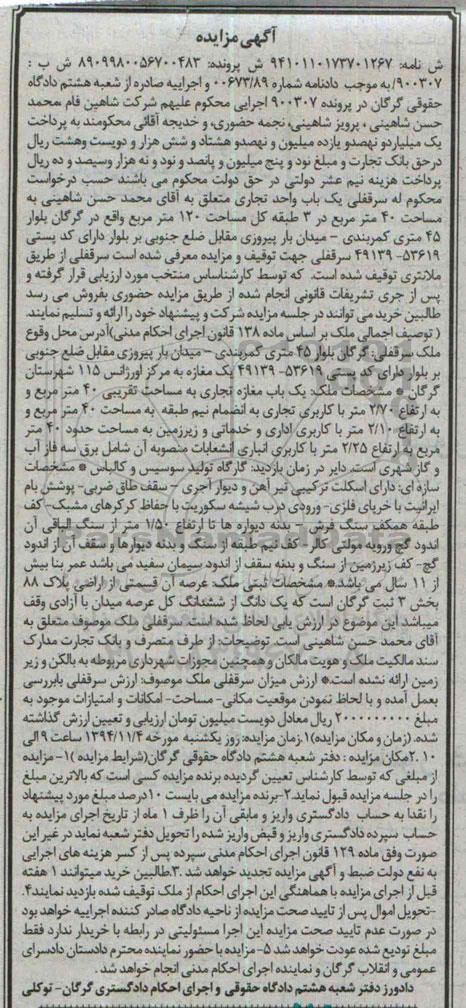 آگهی مزایده
ش نامه: ۹۴۱۰۱۱۰۱۷۳۷۰۱۲۶۷ ش پرونده: ۸۹۰۹۹۸۰۰۵۶۷۰۰۴۸۳ ش ب :
۹۰۰۳۰۷/ به موجب دادنامه شماره ۰۰۶۷۳/۸۹ و اجراییه صادره از شعبه هشتم دادگاه
حقوقی گرگان در پرونده ۹۰۰۳۰۷ اجرایی محکوم علیهم شرکت شاهین فام محمد
حسن شاهینی ، پرویز شاهینی، نجمه حضوری، و خدیجه آقائی محکومند به پرداخت
یک میلیاردو نهصدو یازده میلیون و نهصدو هشتاد و شش هزار و دویست وهشت ریال
درحق بانک تجارت و مبلغ نود و پنج میلیون و پانصد و نود و نه هزار وسیصد و ده ریال
پرداخت هزینه نیم عشر دولتی در حق دولت محکوم می باشند حسب درخواست
محکوم له سرقفلی یک باب واحد تجاری متعلق به آقای محمد حسن شاهینی به
مساحت ۴۰ متر مربع در ۳ طبقه کل مساحت ۱۲۰ متر مربع واقع در گرگان بلوار
۴۵ متری کمربندی - میدان بار پیروزی مقابل ضلع جنوبی بر بلوار دارای کد پستی
۵۳۶۱۹- ۴۹۱۳۹ سرقفلی جهت توقیف و مزایده معرفی شده است سرقفلی از طریق
ملانتری توقیف شده است. که توسط کارشناسان منتخب مورد ارزیابی قرار گرفته و
پس از جری تشریفات قانونی انجام شده از طریق مزایده حضوری بفروش می رسد
طالبین خرید می توانند در جلسه مزایده شرکت و پیشنهاد خود را ارائه و تسلیم نمایند.
( توصیف اجمالی ملک بر اساس ماده ۱۳۸ قانون اجرای احکام مدنی)آدرس محل وقوع
ملک سرقفلی: گرگان بلوار ۴۵ متری کمربندی - میدان بار پیروزی مقابل ضلع جنوبی
بر بلوار دارای کد پستی ۵۳۶۱۹- ۴۹۱۳۹ یک مغازه به مرکز اورژانس ۱۱۵ شهرستان
گرگان * مشخصات ملک: یک باب مغازه تجاری به مساحت تقریبی ۴۰ متر مربع و
به ارتفاع ۲/۷۰ متر با کاربری تجاری به انضمام نیم طبقه به مساحت ۴۰ متر مربع و
به ارتفاع ۲/۱۰ متر با کاربری اداری و خدماتی و زیرزمین به مساحت حدود ۴۰ متر
مربع به ارتفاع ۲/۲۵ متر با کاربری انباری انشعابات منصوبه آن شامل برق سه فاز آب
و گاز شهری است. دایر در زمان بازدید: گارگاه تولید سوسیس و کالباس * مشخصات
سازه ای: دارای اسکلت ترکیبی تیر آهن و دیوار آجری - سقف طاق ضربی- پوشش بام
ایرانیت با خرپای فلزی- ورودی درب شیشه سکوریت با حفاظ کرکرهای مشبک- کف
طبقه همکف سنگ فرش - بدنه دیواره ها تا ارتفاع ۱/۵۰ متر از سنگ الباقی آن
اندود گچ ورویه مولتی کالر - کف نیم طبقه از سنگ و بدنه دیوارها و سقف آن از اندود
گچ- کف زیرزمین از سنگ و بدنه سقف از اندود سیمان سفید می باشد عمر بنا بیش
از ۱۱ سال می باشد.* مشخصات ثبتی ملک: عرصه آن قسمتی از اراضی پلاک ۸۸
بخش ۳ ثبت گرگان است که یک دانگ از ششدانگ کل عرصه میدان با آزادی وقف
میباشد این موضوع در ارزش یابی لحاظ شده است. سرقفلی ملک موصوف متعلق به
آقای محمد حسن شاهینی است. توضیحات: از طرف متصرف و بانک تجارت مدارک
سند مالکیت ملک و هویت مالکان و همچنین مجوزات شهرداری مربوطه به بالکن و زیر
زمین ارائه نشده است.* ارزش میزان سرقفلی ملک موصوف: ارزش سرقفلی بابررسی
بعمل آمده و با لحاظ نمودن موقعیت مکانی- مساحت- امکانات و امتیازات موجود به
مبلغ ۲۰۰۰۰۰۰۰۰۰ ریال معادل دویست میلیون تومان ارزیابی و تعیین ارزش گذاشته
شده. (زمان و مکان مزایده)۱.زمان مزایده: روز یکشنبه مورخه ۱۳۹۴/۱۱/۴ ساعت ۹ الی
۱۰ .۲مکان مزایده : دفتر شعبه هشتم دادگاه حقوقی گرگان(شرایط مزایده )۱-مزایده
از مبلغی که توسط کارشناس تعیین گردیده برنده مزایده کسی است که بالاترین مبلغ
را در جلسه مزایده قبول نماید.۲-برنده مزایده می بایست ۱۰درصد مبلغ مورد پیشنهاد
را نقدا به حساب دادگستری واریز و مابقی آن را ظرف ۱ ماه از تاریخ اجرای مزایده به
حساب سپرده دادگستری واریز و قبض واریز شده را تحویل دفتر شعبه نماید در غیر این
صورت وفق ماده ۱۲۹ قانون اجرای احکام مدنی سپرده پس از کسر هزینه های اجرایی
به نفع دولت ضبط و آگهی مزایده تجدید خواهد شد .۳.طالبین خرید میتوانند ۱ هفته
قبل از اجرای مزایده با هماهنگی این اجرای احکام از ملک توقیف شده بازدید نمایند۴.
-تحویل اموال پس از تایید صحت مزایده از ناحیه دادگاه صادر کننده اجراییه خواهد بود
در صورت عدم تایید صحت مزایده این اجرا مسئولیتی در رابطه با خریدار ندارد فقط
مبلغ تودیع شده عودت خواهد شد ۵-مزایده با حضور نماینده محترم دادستان دادسرای
عمومی و انقلاب گرگان و نماینده اجرای احکام مدنی انجام خواهد شد.
دادورز دفتر شعبه هشتم دادگاه حقوقی و اجرای احکام دادگستری گرگان- توکلی